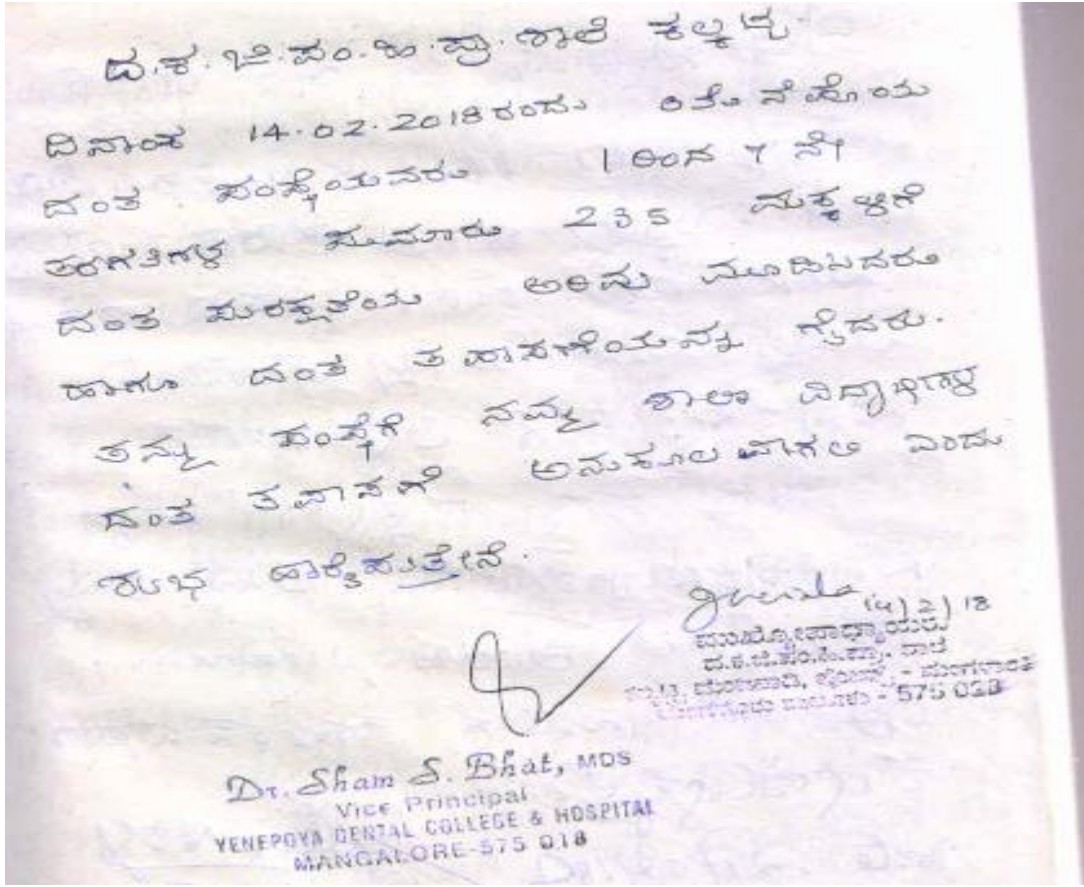 ದ.ಕ.ಜಿ.ಪಂ.ಹಿ.ಪ್ರಾ.ಶಾಲೆ ಕಲ್ಕಟ್ಟ
ದಿನಾಂಕ 14.02.2018 ರಂದು
ದಂತ ಸಂಸ್ಥೆಯವರು 1 ರಿಂದ 7 ನೇ
ತರಗತಿಗಳ ಸುಮಾರು 235 ಮಕ್ಕಳಿಗೆ
ದಂತ ಸುರಕ್ಷತೆಯ ಅರಿವು ಮೂಡಿಸಿದರು
ಹಾಗೂ ದಂತ ತಪಾಸಣೆಯನ್ನು ಗೈದರು.
ತಮ್ಮ ಸಂಸ್ಥೆಗೆ ನಮ್ಮ ಶಾಲಾ ವಿದ್ಯಾರ್ಥಿಗಳ
ದಂತ ತಪಾಸಣೆ ಅನುಕೂಲವಾಗಲಿ ಎಂದು
ಶುಭ ಹಾರೈಸುತ್ತೇನೆ.
14/2/18
ಮುಖ್ಯೋಪಾಧ್ಯಾಯರು
ದ.ಕ.ಜಿ.ಪಂ.ಹಿ.ಪ್ರಾ. ಶಾಲೆ
- 575 028
Dr. Sham S. Bhat, MDS
Vice Principal
YENEPOYA DENTAL COLLEGE & HOSPITAL
MANGALORE-575 018